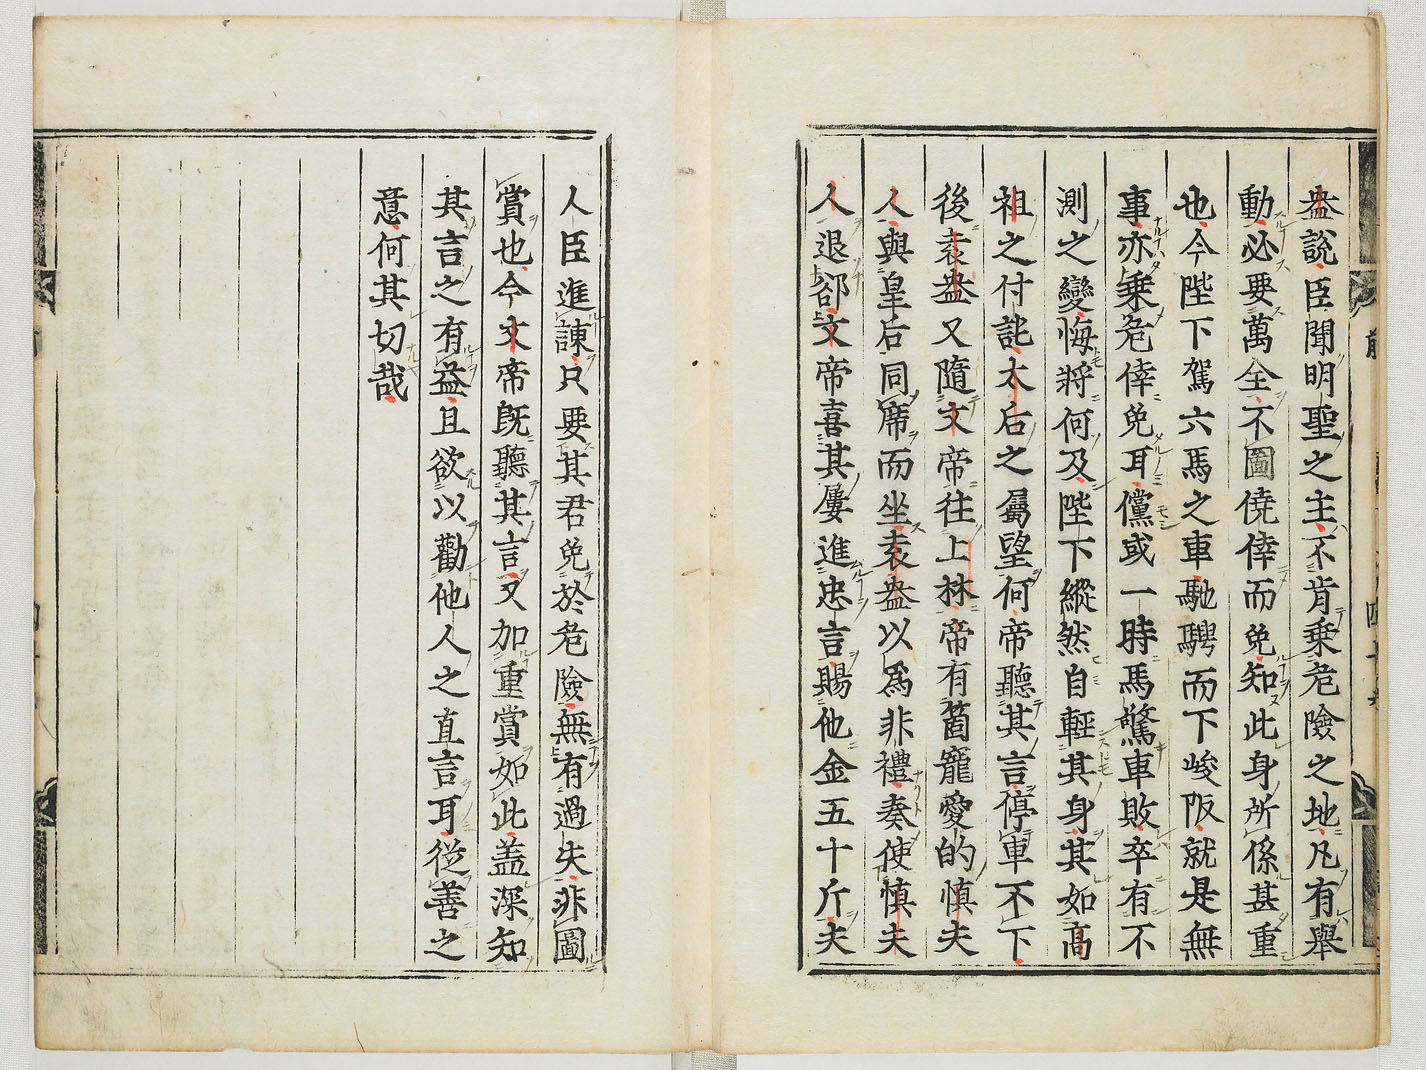 盎說臣聞明聖之主不肯乗危險之地凡有舉
動必要萬全不圖僥倖而免知此身所係甚重
也今陛下駕六馬之車馳騁而下峻阪就是無
事亦乗危倖免耳儻或一時馬驚車敗卒有不
測之變悔將何及陛下縱然自輕其身其如高
祖之付託太后之屬望何帝聽其言停車不下
後袁盎又隨文帝往上林帝有箇寵愛的慎夫
人與皇后同席而坐袁盎以爲非禮奏使慎夫
人退卻文帝喜其屢進忠言賜他金五十斤夫
人臣進諌只要其君免於危險無有過失非圖
賞也今文帝旣聽其言又加重賞如此盖深知
其言之有益且欲以勸他人之直言耳從善之
意何其切哉